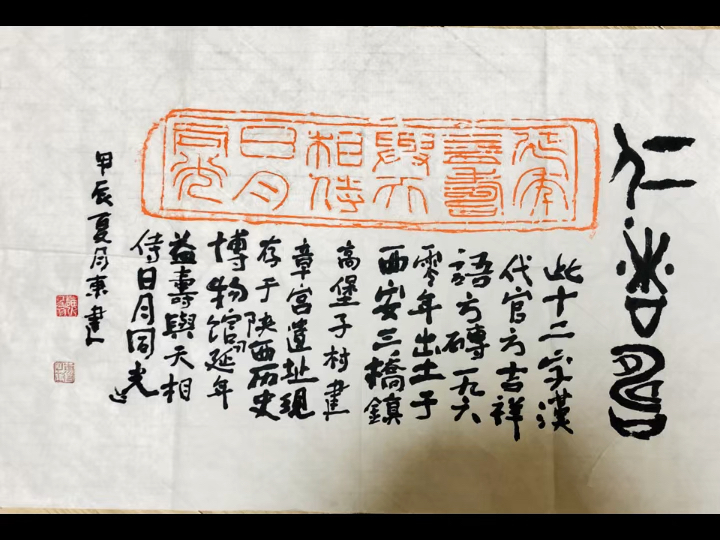 仁者寿
延年
益壽
與天
相侍
日月
同光
此十二字漢
代官方吉祥
語方磚一九六
零年出土于
西安三橋鎮
高堡子村建
章宮遺址現
存于陕西历史
博物馆延年
益壽與天相
侍日月同光
甲辰夏月東